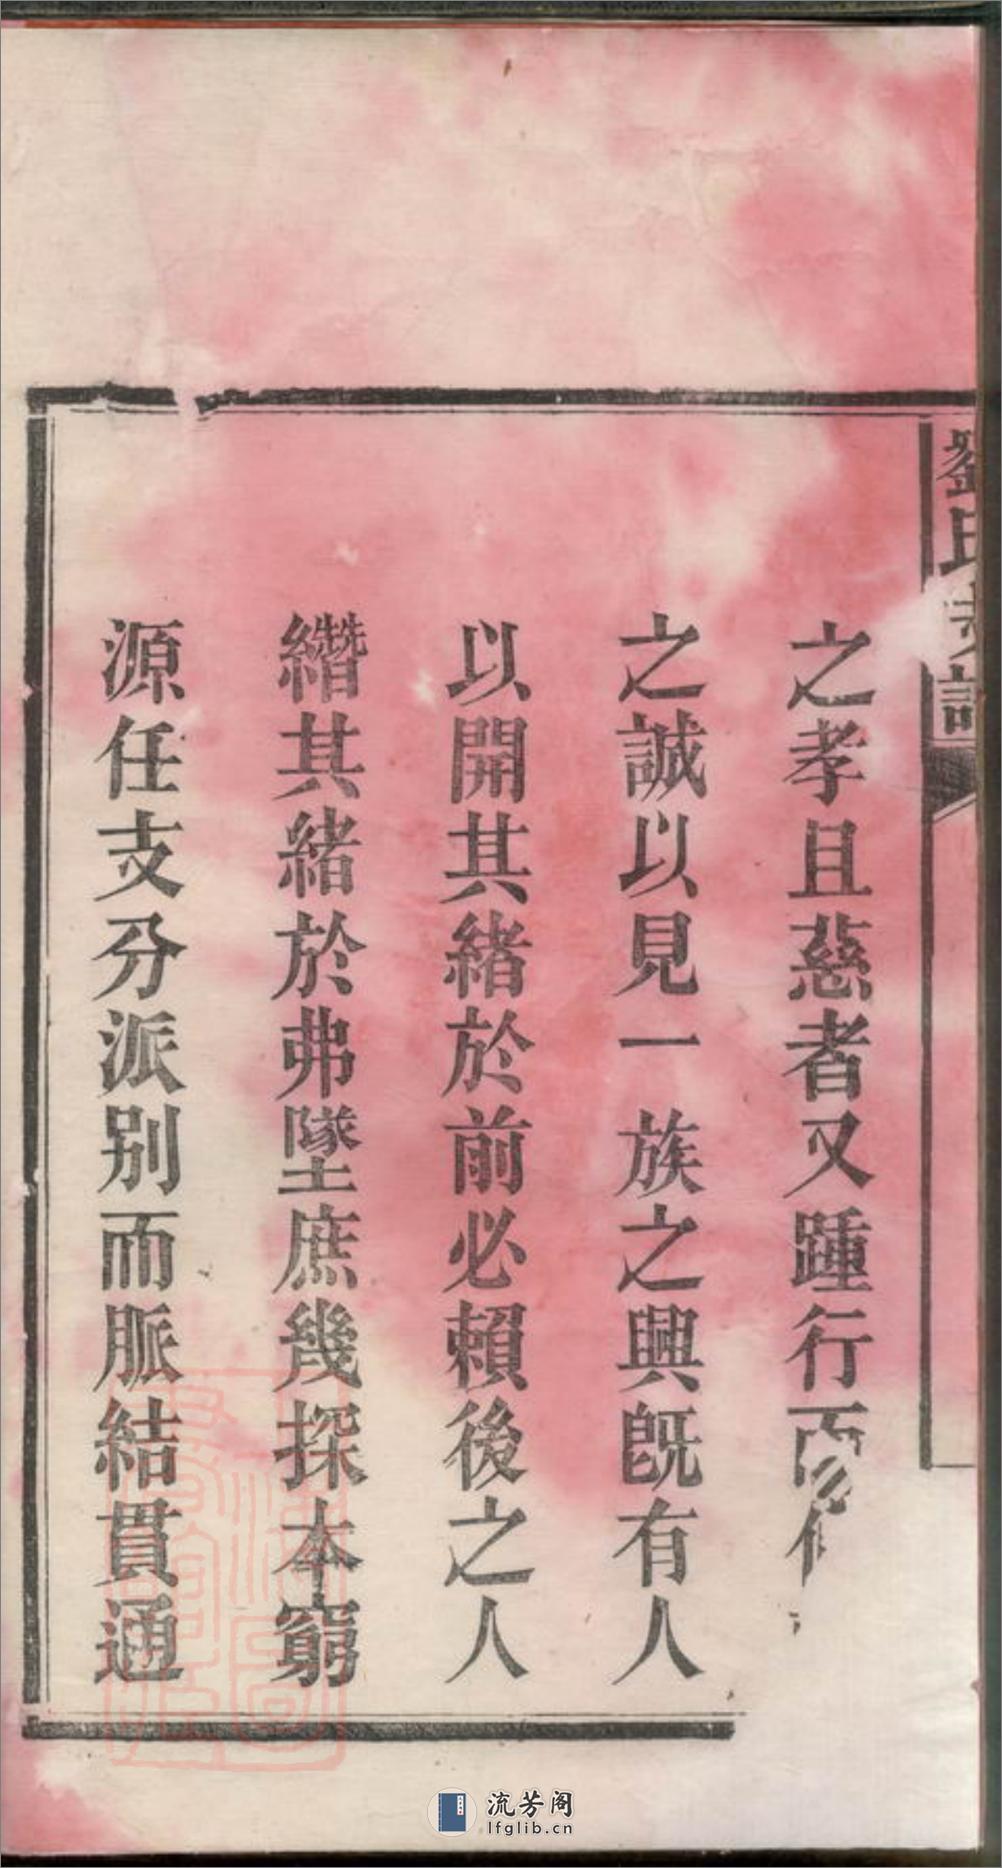 劉氏支譜
之孝且慈者又踵行而
之誠以見一族之興旣有人
以開其緒於前必賴後之人
纘其緒於弗墜庶幾探本窮
源任支分派别而脈結貫通
流芳阁
lfglib.cn